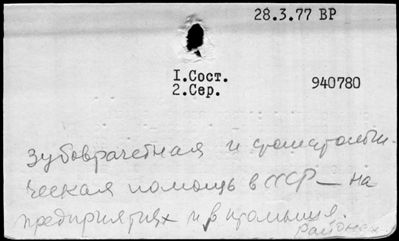 28.3.77 ВР
1.Сост.
2.Сер.
940780
Зубоврачебная и стоматологи-
ческая помощь в СССР — на
предприятиях и в промышл.
районах